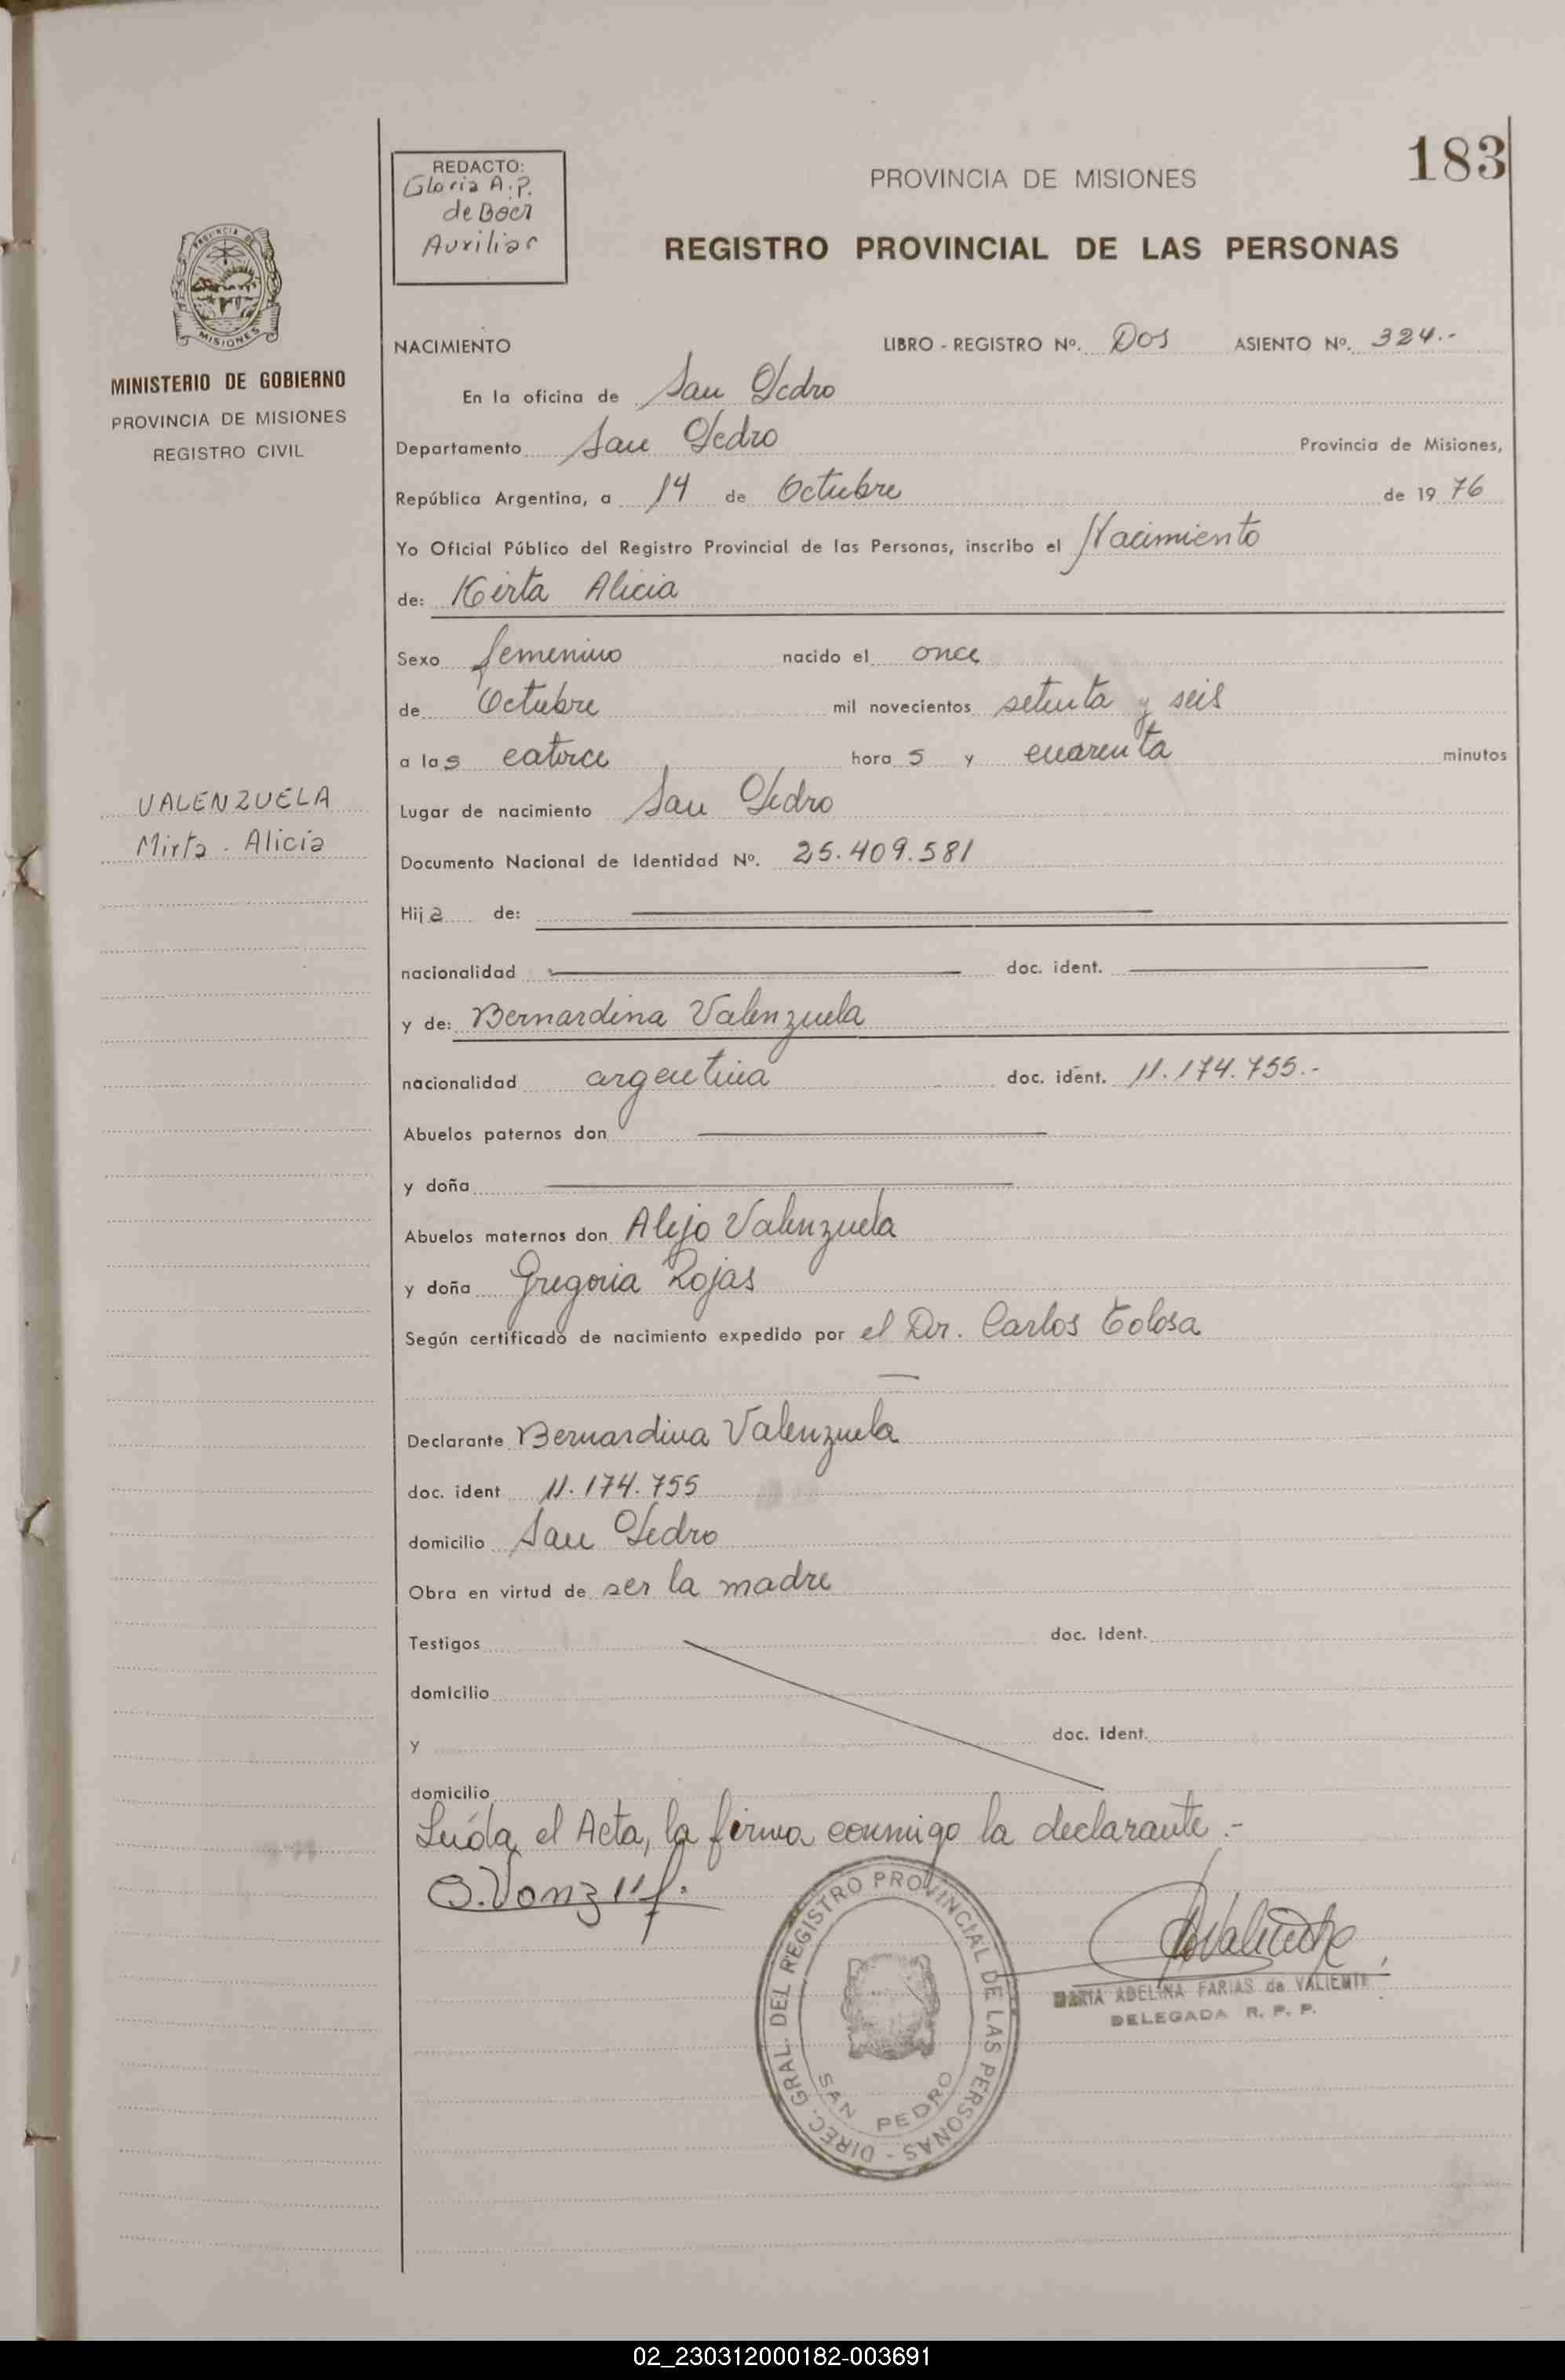 183
REDACTO:
Gloria A.P.
de Boer
Auxiliar
PROVINCIA DE MISIONES
REGISTRO PROVINCIAL DE LAS PERSONAS
PROVINCIA DE
MISIONES
MINISTERIO DE GOBIERNO
PROVINCIA DE MISIONES
REGISTRO CIVIL
NACIMIENTO LIBRO - REGISTRO Nº. Dos ASIENTO Nº. 324.-
En la oficina de San Pedro
Departamento San Pedro Provincia de Misiones,
República Argentina, a 14 de Octubre de 19 76
Yo Oficial Público del Registro Provincial de las Personas, inscribo el Nacimiento
de: Mirta Alicia
Sexo femenino nacido el once
de Octubre mil novecientos setenta y seis
a las catorce horas y cuarenta minutos
VALENZUELA
Mirta - Alicia
Lugar de nacimiento San Pedro
Documento Nacional de Identidad Nº. 25.409.581
Hija de:
nacionalidad doc. ident.
y de: Bernardina Valenzuela
nacionalidad argentina doc. ident. 11.174.755.-
Abuelos paternos don
y doña
Abuelos maternos don Alejo Valenzuela
y doña Gregoria Rojas
Según certificado de nacimiento expedido por el Dr. Carlos Tolosa
Declarante Bernardina Valenzuela
doc. ident 11.174.755
domicilio San Pedro
Obra en virtud de ser la madre
Testigos doc. ident.
domicilio
y doc. ident.
domicilio
Leída el Acta, la firma conmigo la declarante.-
DIREC. GRAL. DEL REGISTRO PROVINCIAL DE LAS PERSONAS -
SAN PEDRO
MARIA ADELINA FARIAS de VALIENTE
DELEGADA R. P. P.
02_230312000182-003691